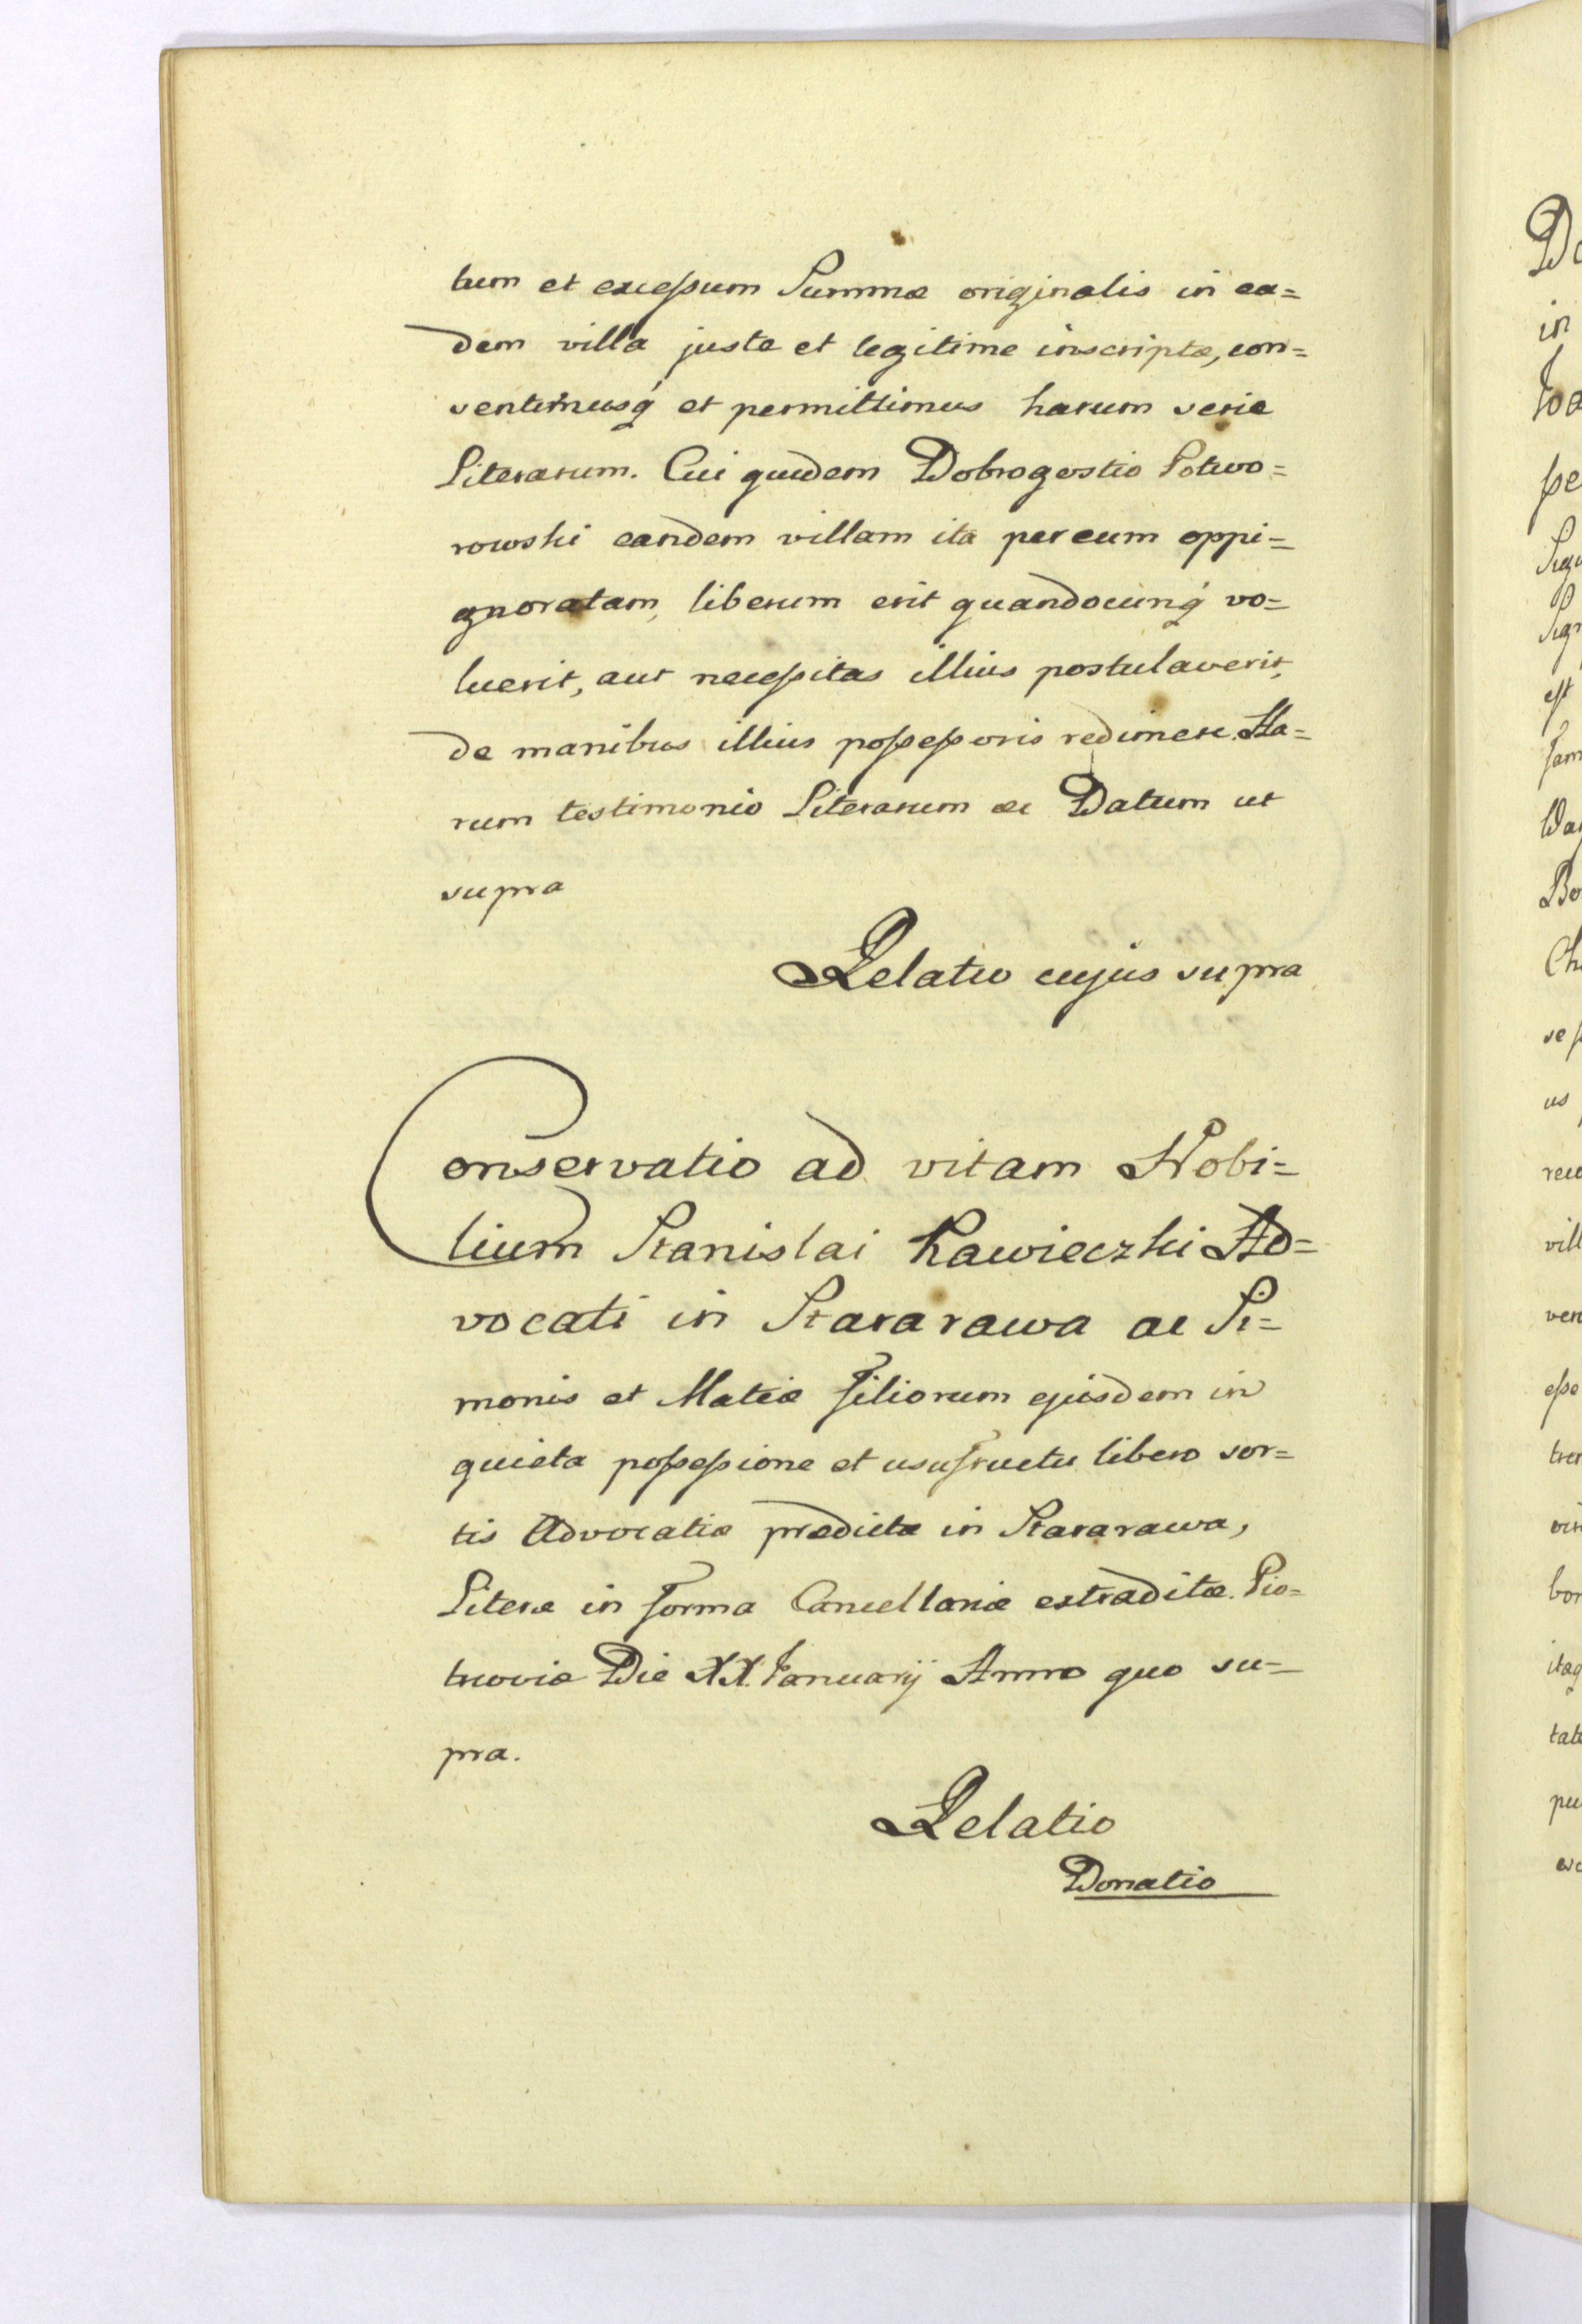 tum et excessum Summæ originalis in ea=
dem villa juste et legitime inscriptæ, con=
sentimusq́ et permittimus harum serie
Literarum. Cui quidem Dobrogostio Potwo=
rowski eandem villam ita per eum oppi=
gnoratam, liberum erit quandocunq́ vo=
luerit, aut necessitas illius postulaverit,
de manibus illius possessoris redimere. Ha=
rum testimonio Literarum etc Datum ut
supra
Relatio cujus supra
Conservatio ad vitam Nobi=
lium Stanislai Rawieczki Ad=
vocati in Stararawa ac Si=
monis et Matiæ filiorum ejusdem in
quieta possessione et usufructu libero sor=
tis Advocatiæ prædictæ in Stararawa,
Literæ in forma Cancellariæ extraditæ. Pio=
trcoviæ Die XX. Januarij Anno quo su=
pra.
Relatio
Donatio